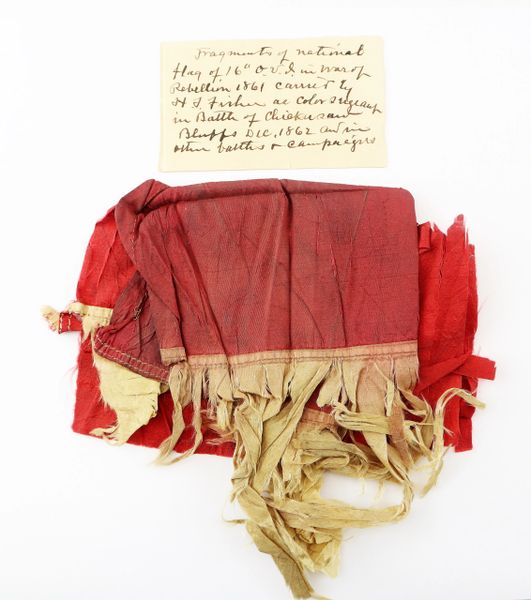 Fragments of national
flag of 16" O.V.I. in War of
Rebellion 1861 carried by
H S Fisher as Color Sergeant
in Battle of Chickasaw
Bluffs Dec. 1862 and in
other battles & campaigns